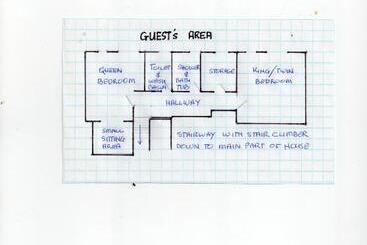 GUEST'S AREA
QUEEN
BEDROOM
TOILET
&
WASH
BASIN
SHOWER
&
BATH
TUB
STORAGE
KING/TWIN
BEDROOM
HALLWAY
SMALL
SITTING
AREA
STAIRWAY WITH STAIR CLIMBER
DOWN TO MAIN PART OF HOUSE